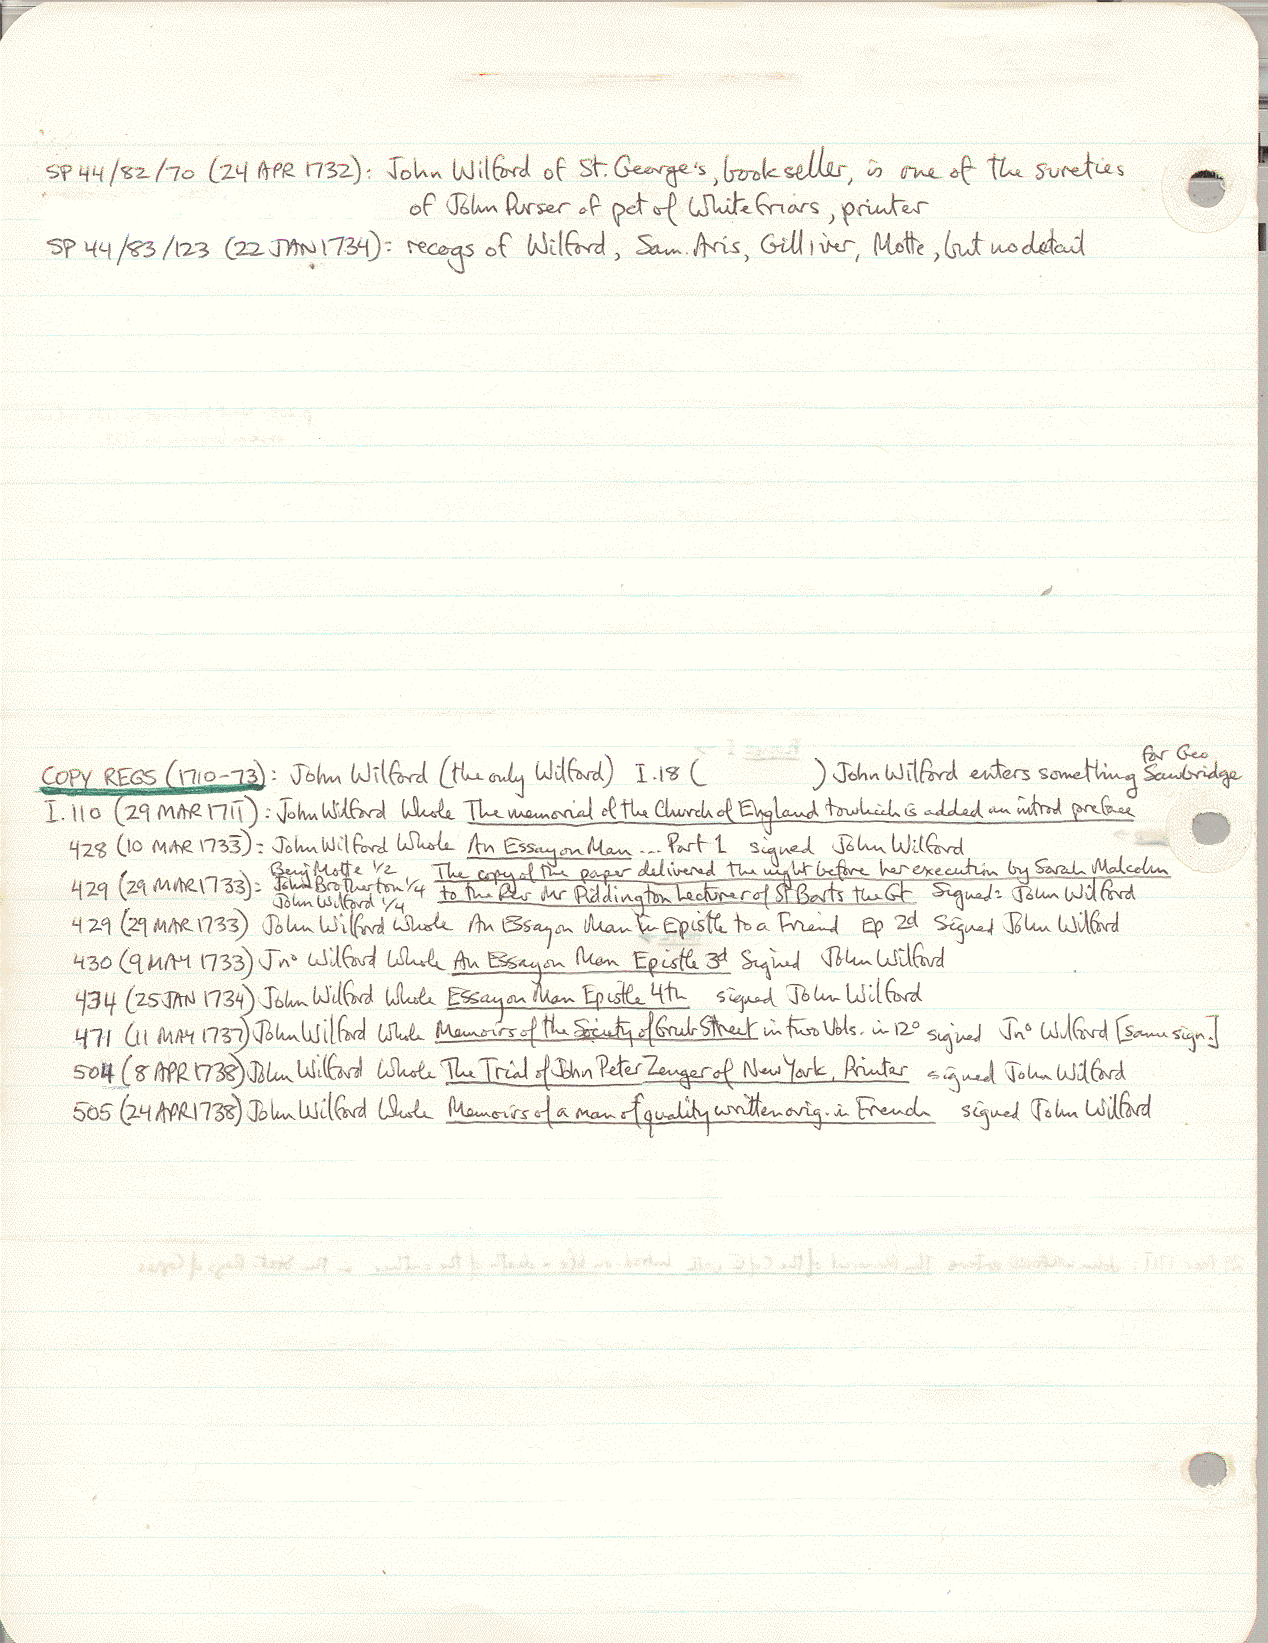 SP 44/82/70 (24 APR 1732): John Wilford of St. George's, bookseller, is one of the sureties
of John Purser of pct of Whitefriars, printer
SP 44/83/123 (22 JAN 1734): recogs of Wilford, Sam. Aris, Gilliver, Motte, but no detail
for Geo
COPY REGS (1710-73): John Wilford (the only Wilford) I.18 ( ) John Wilford enters something Sawbridge
I.110 (29 MAR 1711): John Wilford Whole The memorial of the Church of England to which is added an introd preface
428 (10 MAR 1733): John Wilford Whole An Essay on Man ... Part 1 signed John Wilford
Benj Motte 1/2 The copy of the paper delivered the night before her execution by Sarah Malcolm
429 (29 MAR 1733): John Brotherton 1/4 to the Rev Mr Piddington Lecturer of St Barts the Gt Signed: John Wilford
John Wilford 1/4
429 (29 MAR 1733) John Wilford Whole An Essay on Man in Epistle to a Friend Ep 2d Signed John Wilford
430 (9 MAY 1733) Jno Wilford Whole An Essay on Man Epistle 3d Signed John Wilford
434 (25 JAN 1734) John Wilford Whole Essay on Man Epistle 4th signed John Wilford
471 (11 MAY 1737) John Wilford Whole Memoirs of the Society of Grub Street in two Vols. in 12° signed Jno Wilford [same sign.]
504 (8 APR 1738) John Wilford Whole The Trial of John Peter Zenger of New York, Printer signed John Wilford
505 (24 APR 1738) John Wilford Whole Memoirs of a man of quality written orig. in French signed John Wilford